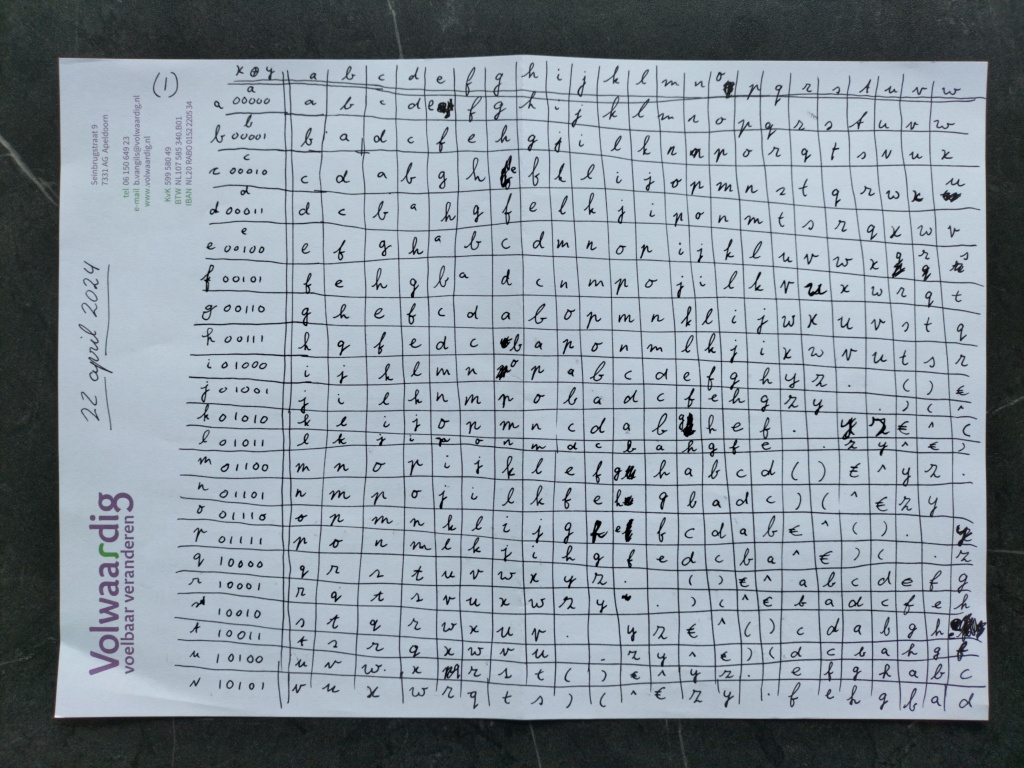 (1)
x⊕y a b c d e f g h i j k l m n o p q r s t u v w
a
a 00000 a b c d e f g h i j k l m n o p q r s t u v w
b
b 00001 b a d c f e h g j i l k n m p o r q t s v u x
c
c 00010 c d a b g h e f k l i j o p m n s t q r w x u
d
d 00011 d c b a h g f e l k j i p o n m t s r q x w v
e
e 00100 e f g h a b c d m n o p i j k l u v w x q r s
f 00101 f e h g b a d c n m p o j i l k v u x w r q t
g 00110 g h e f c d a b o p m n k l i j w x u v s t q
h 00111 h g f e d c b a p o n m l k j i x w v u t s r
i 01000 i j k l m n o p a b c d e f g h y z . ( ) €
j 01001 j i l k n m p o b a d c f e h g z y . ) ( ^
k 01010 k l i j o p m n c d a b g h e f . y z € ^ (
l 01011 l k j i p o n m d c b a h g f e . z y ^ € )
m 01100 m n o p i j k l e f g h a b c d ( ) € ^ y z .
n 01101 n m p o j i l k f e h g b a d c ) ( ^ € z y
o 01110 o p m n k l i j g h e f c d a b € ^ ( ) . y
p 01111 p o n m l k j i h g f e d c b a ^ € ) ( . z
q 10000 q r s t u v w x y z . ( ) € ^ a b c d e f g
r 10001 r q t s v u x w z y . ) ( ^ € b a d c f e h
s 10010 s t q r w x u v . y z € ^ ( ) c d a b g h
t 10011 t s r q x w v u . z y ^ € ) ( d c b a h g f
u 10100 u v w x q r s t ( ) € ^ y z . e f g h a b c
v 10101 v u x w r q t s ) ( ^ € z y . f e h g b a d
22 april 2024
Volwaardig
voelbaar veranderen
Seinbrugstraat 9
7331 AG Apeldoorn
tel 06 150 649 23
e-mail b.vangils@volwaardig.nl
www.volwaardig.nl
KvK 599 580 49
BTW NL107 585 340.B01
IBAN NL20 RABO 0152 2205 34